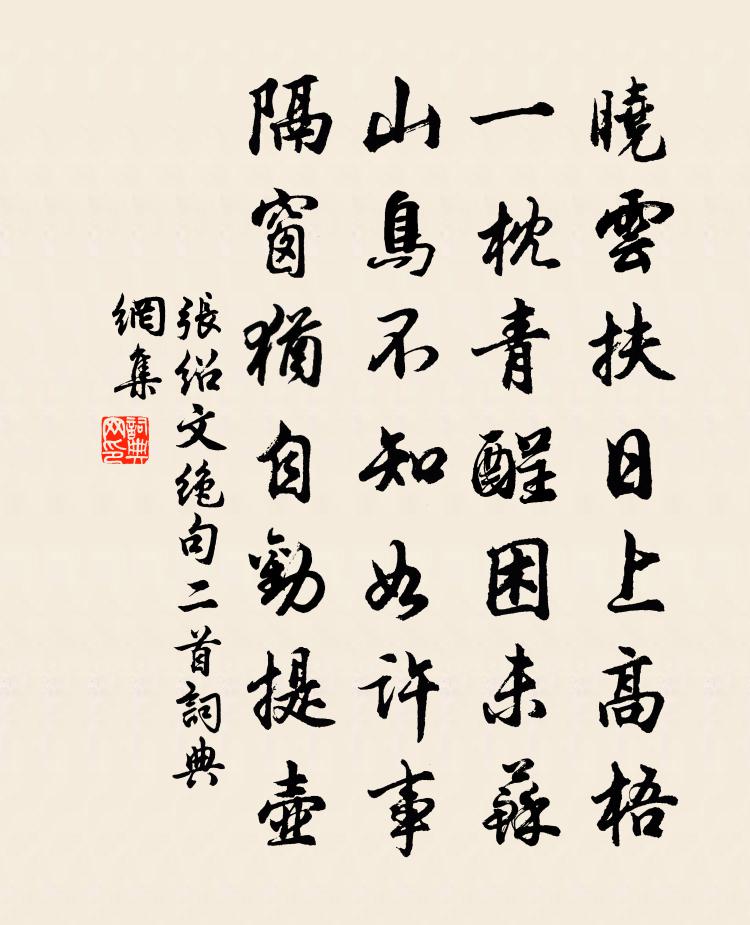 曉雲扶日上高梧
一枕青醒困未蘇
山鳥不知如許事
隔窗猶自勸提壺
張紹文絶句二首詞典
網集
詞典
网印